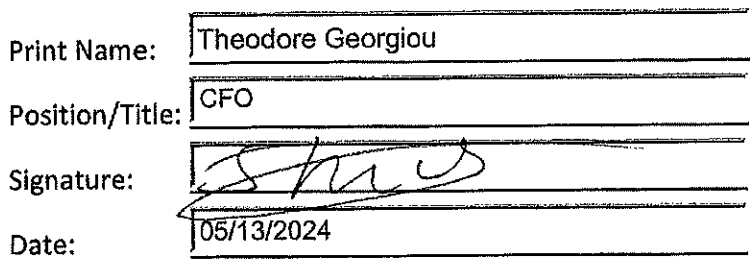 Print Name: Theodore Georgiou
Position/Title: CFO
Signature:
Date: 05/13/2024